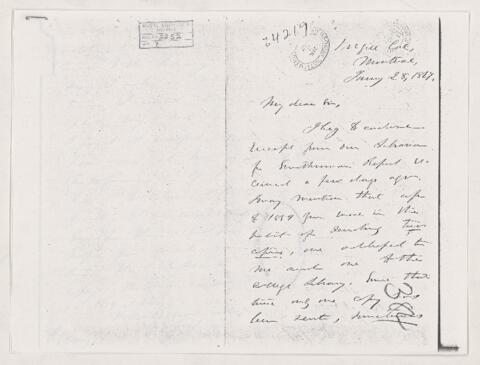 34219
McGill Col,
Montreal,
Jany 28, 1867.
My dear Sir,
I beg to enclose
receipt from our Librarian
for Smithsonian Report re
ceived a few days ago.
I may mention that
of 18 you were in the
habit of sending two
copies, one addressed to
me and one to the
College Library. Since that
time only one copy has
been sent, sometimes
384